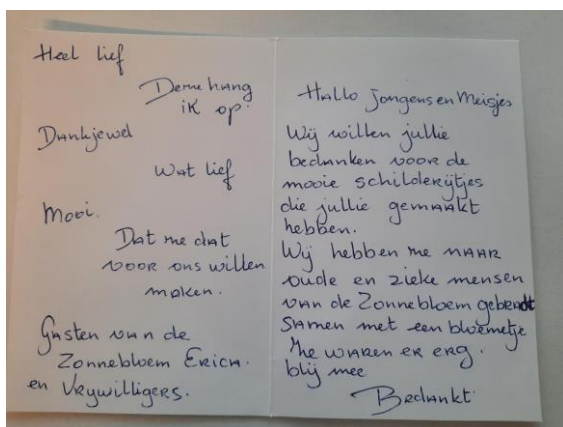 Heel lief
Deme hang
ik op.
Dankjewel
Wat lief
Mooi.
Dat me dat
voor ons willen
maken.
Gasten van de
Zonnebloem Erica.
en Vrywilligers.
Hallo Jongens en Meisjes
Wij willen jullie
bedanken voor de
mooie schilderijtjes
die jullie gemaakt
hebben.
Wij hebben me naar
oude en zieke mensen
van de Zonnebloem
samen met een bloemetje
waren er erg.
blij mee
Bedankt